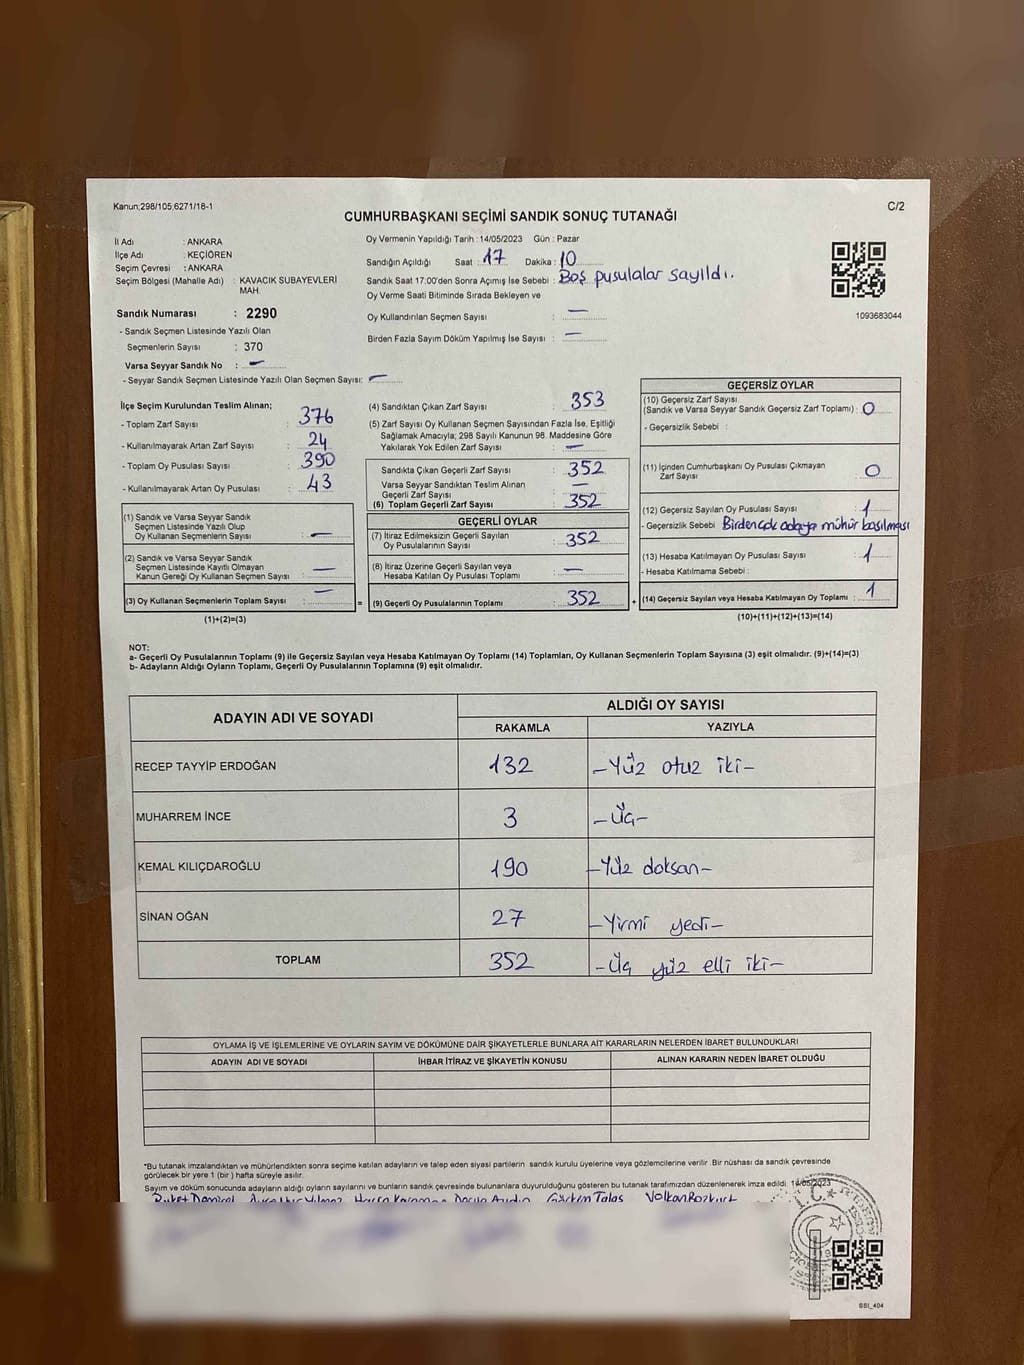 Kanun;298/105,6271/18-1
C/2
CUMHURBAŞKANI SEÇİMİ SANDIK SONUÇ TUTANAĞI
İl Adı : ANKARA
İlçe Adı : KEÇİÖREN
Seçim Çevresi : ANKARA
Seçim Bölgesi (Mahalle Adı) : KAVACIK SUBAYEVLERİ
MAH.
Sandık Numarası : 2290
- Sandık Seçmen Listesinde Yazılı Olan
Seçmenlerin Sayısı : 370
Varsa Seyyar Sandık No : —
- Seyyar Sandık Seçmen Listesinde Yazılı Olan Seçmen Sayısı: —
Oy Vermenin Yapıldığı Tarih :14/05/2023 Gün : Pazar
Sandığın Açıldığı Saat : 17 Dakika : 10
Sandık Saat 17.00'den Sonra Açımış İse Sebebi : Boş pusulalar sayıldı.
Oy Verme Saati Bitiminde Sırada Bekleyen ve
Oy Kullandırılan Seçmen Sayısı : —
Birden Fazla Sayım Döküm Yapılmış İse Sayısı : —
1093683044
İlçe Seçim Kurulundan Teslim Alınan;
- Toplam Zarf Sayısı : 376
- Kullanılmayarak Artan Zarf Sayısı : 24
- Toplam Oy Pusulası Sayısı : 390
- Kullanılmayarak Artan Oy Pusulası : 43
(1) Sandık ve Varsa Seyyar Sandık
Seçmen Listesinde Yazılı Olup
Oy Kullanan Seçmenlerin Sayısı : —
(2) Sandık ve Varsa Seyyar Sandık
Seçmen Listesinde Kayıtlı Olmayan
Kanun Gereği Oy Kullanan Seçmen Sayısı : —
(3) Oy Kullanan Seçmenlerin Toplam Sayısı : —
(1)+(2)=(3)
(4) Sandıktan Çıkan Zarf Sayısı : 353
(5) Zarf Sayısı Oy Kullanan Seçmen Sayısından Fazla İse, Eşitliği
Sağlamak Amacıyla; 298 Sayılı Kanunun 98. Maddesine Göre
Yakılarak Yok Edilen Zarf Sayısı : —
Sandıkta Çıkan Geçerli Zarf Sayısı : 352
Varsa Seyyar Sandıktan Teslim Alınan
Geçerli Zarf Sayısı : —
(6) Toplam Geçerli Zarf Sayısı : 352
GEÇERLİ OYLAR
(7) İtiraz Edilmeksizin Geçerli Sayılan
Oy Pusulalarının Sayısı : 352
(8) İtiraz Üzerine Geçerli Sayılan veya
Hesaba Katılan Oy Pusulası Toplamı : —
= (9) Geçerli Oy Pusulalarının Toplamı : 352 +
GEÇERSİZ OYLAR
(10) Geçersiz Zarf Sayısı
(Sandık ve Varsa Seyyar Sandık Geçersiz Zarf Toplamı) : 0
- Geçersizlik Sebebi :
(11) İçinden Cumhurbaşkanı Oy Pusulası Çıkmayan
Zarf Sayısı : 0
(12) Geçersiz Sayılan Oy Pusulası Sayısı : 1
- Geçersizlik Sebebi Birden çok adaya mühür basılması
(13) Hesaba Katılmayan Oy Pusulası Sayısı : 1
- Hesaba Katılmama Sebebi :
(14) Geçersiz Sayılan veya Hesaba Katılmayan Oy Toplamı : 1
(10)+(11)+(12)+(13)=(14)
NOT:
a- Geçerli Oy Pusulalarının Toplamı (9) ile Geçersiz Sayılan veya Hesaba Katılmayan Oy Toplamı (14) Toplamları, Oy Kullanan Seçmenlerin Toplam Sayısına (3) eşit olmalıdır. (9)+(14)=(3)
b- Adayların Aldığı Oyların Toplamı, Geçerli Oy Pusulalarının Toplamına (9) eşit olmalıdır.
ADAYIN ADI VE SOYADI ALDIĞI OY SAYISI
RAKAMLA YAZIYLA
RECEP TAYYİP ERDOĞAN 132 –Yüz otuz iki–
MUHARREM İNCE 3 –Üç–
KEMAL KILIÇDAROĞLU 190 –Yüz doksan–
SİNAN OĞAN 27 –Yirmi yedi–
TOPLAM 352 –Üç yüz elli iki–
OYLAMA İŞ VE İŞLEMLERİNE VE OYLARIN SAYIM VE DÖKÜMÜNE DAİR ŞİKAYETLERLE BUNLARA AİT KARARLARIN NELERDEN İBARET BULUNDUKLARI
ADAYIN ADI VE SOYADI İHBAR İTİRAZ VE ŞİKAYETİN KONUSU ALINAN KARARIN NEDEN İBARET OLDUĞU
*Bu tutanak imzalandıktan ve mühürlendikten sonra seçime katılan adayların ve talep eden siyasi partilerin sandık kurulu üyelerine veya gözlemcilerine verilir. Bir nüshası da sandık çevresinde
görülecek bir yere 1 (bir) hafta süreyle asılır.
Sayım ve döküm sonucunda adayların aldığı oyların sayılarını ve bunların sandık çevresinde bulunanlara duyurulduğunu gösteren bu tutanak tarafımızdan düzenlenerek imza edildi. 14/05/2023
Yılmaz Aydın Görkem Talas Volkan Bozkurt
T.C.
SSI_404